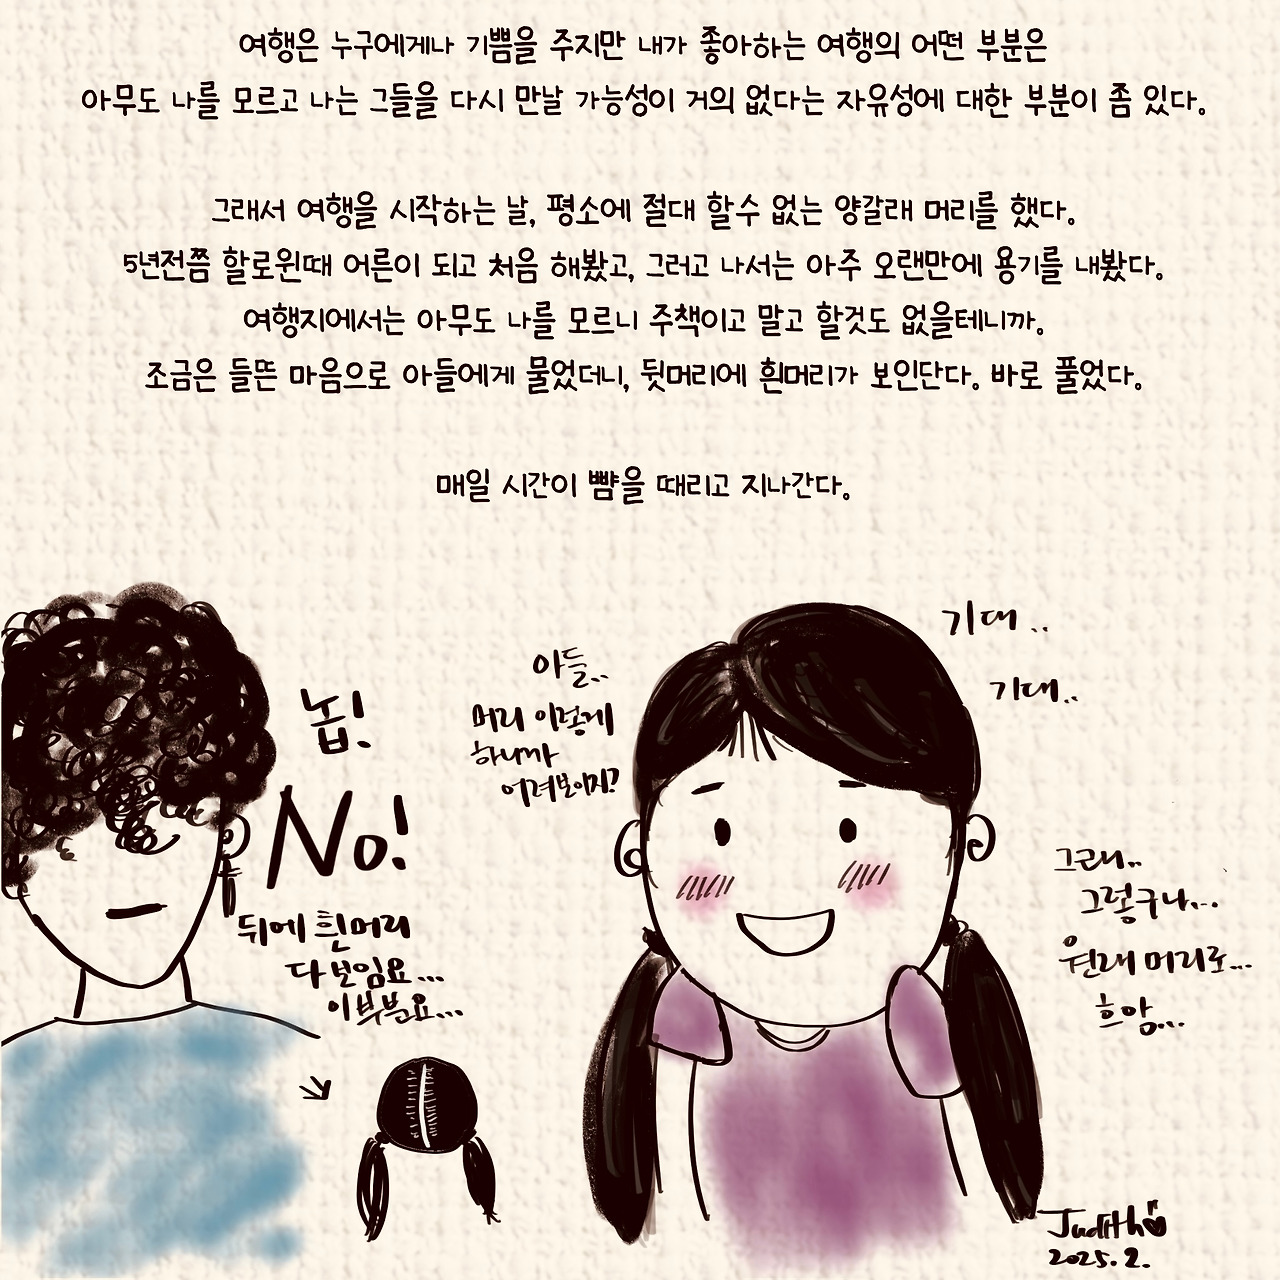 여행은 누구에게나 기쁨을 주지만 내가 좋아하는 여행의 어떤 부분은
아무도 나를 모르고 나는 그들을 다시 만날 가능성이 거의 없다는 자유성에 대한 부분이 좀 있다.
그래서 여행을 시작하는 날, 평소에 절대 할수 없는 양갈래 머리를 했다.
5년전쯤 할로윈때 어른이 되고 처음 해봤고, 그러고 나서는 아주 오랜만에 용기를 내봤다.
여행지에서는 아무도 나를 모르니 주책이고 말고 할것도 없을테니까.
조금은 들뜬 마음으로 아들에게 물었더니, 뒷머리에 흰머리가 보인단다. 바로 풀었다.
매일 시간이 뺨을 때리고 지나간다.
기대..
기대..
아들..
머리 이렇게
하니까
어려보이지?
놉!
No!
뒤에 흰머리
다 보임요...
이부분요...
그래..
그렇구나...
원래 머리로...
흐암...
Judith
2025.2.